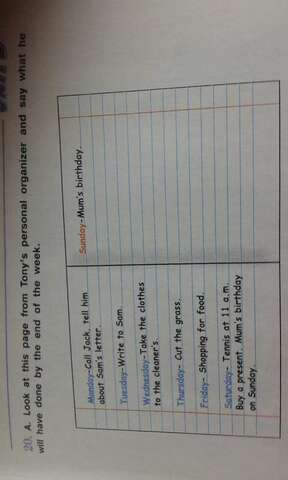 20. A. Look at this page from Tony's personal organizer and say what he
will have done by the end of the week.
Monday-Call Jack, tell him
about Sam's letter.
Tuesday-Write to Sam.
Wednesday-Take the clothes
to the cleaner's.
Thursday- Cut the grass.
Friday- Shopping for food.
Saturday- Tennis at 11 a.m.
Buy a present. Mum's birthday
on Sunday.
Sunday-Mum's birthday.